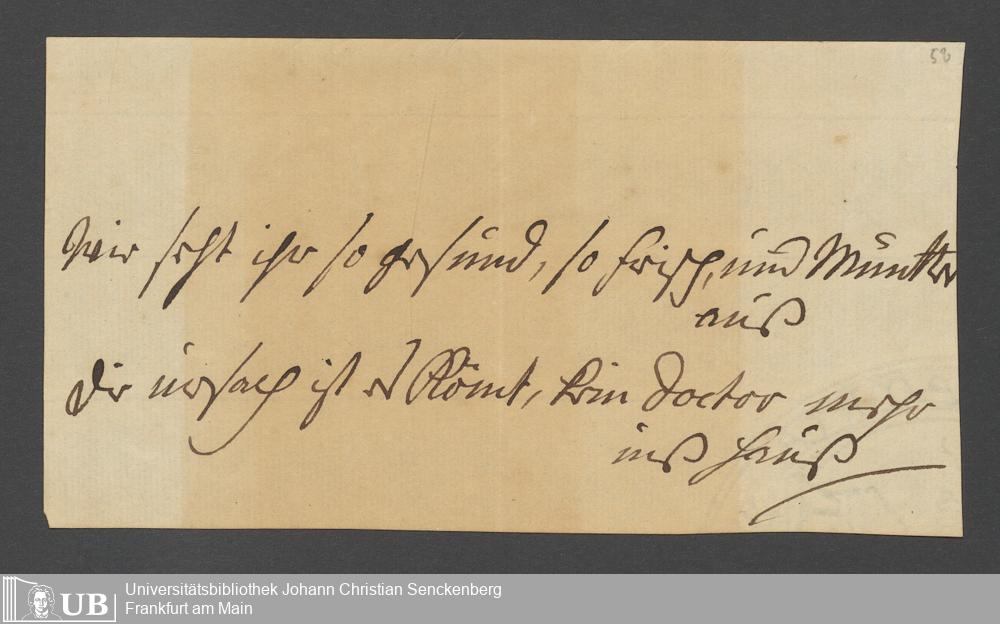 58
Wie seht ihr so gesund, so frisch, und Munter
auß
die ursach ist es Kömt, kein doctor mehr
inß hauß
UB
Universitätsbibliothek Johann Christian Senckenberg
Frankfurt am Main